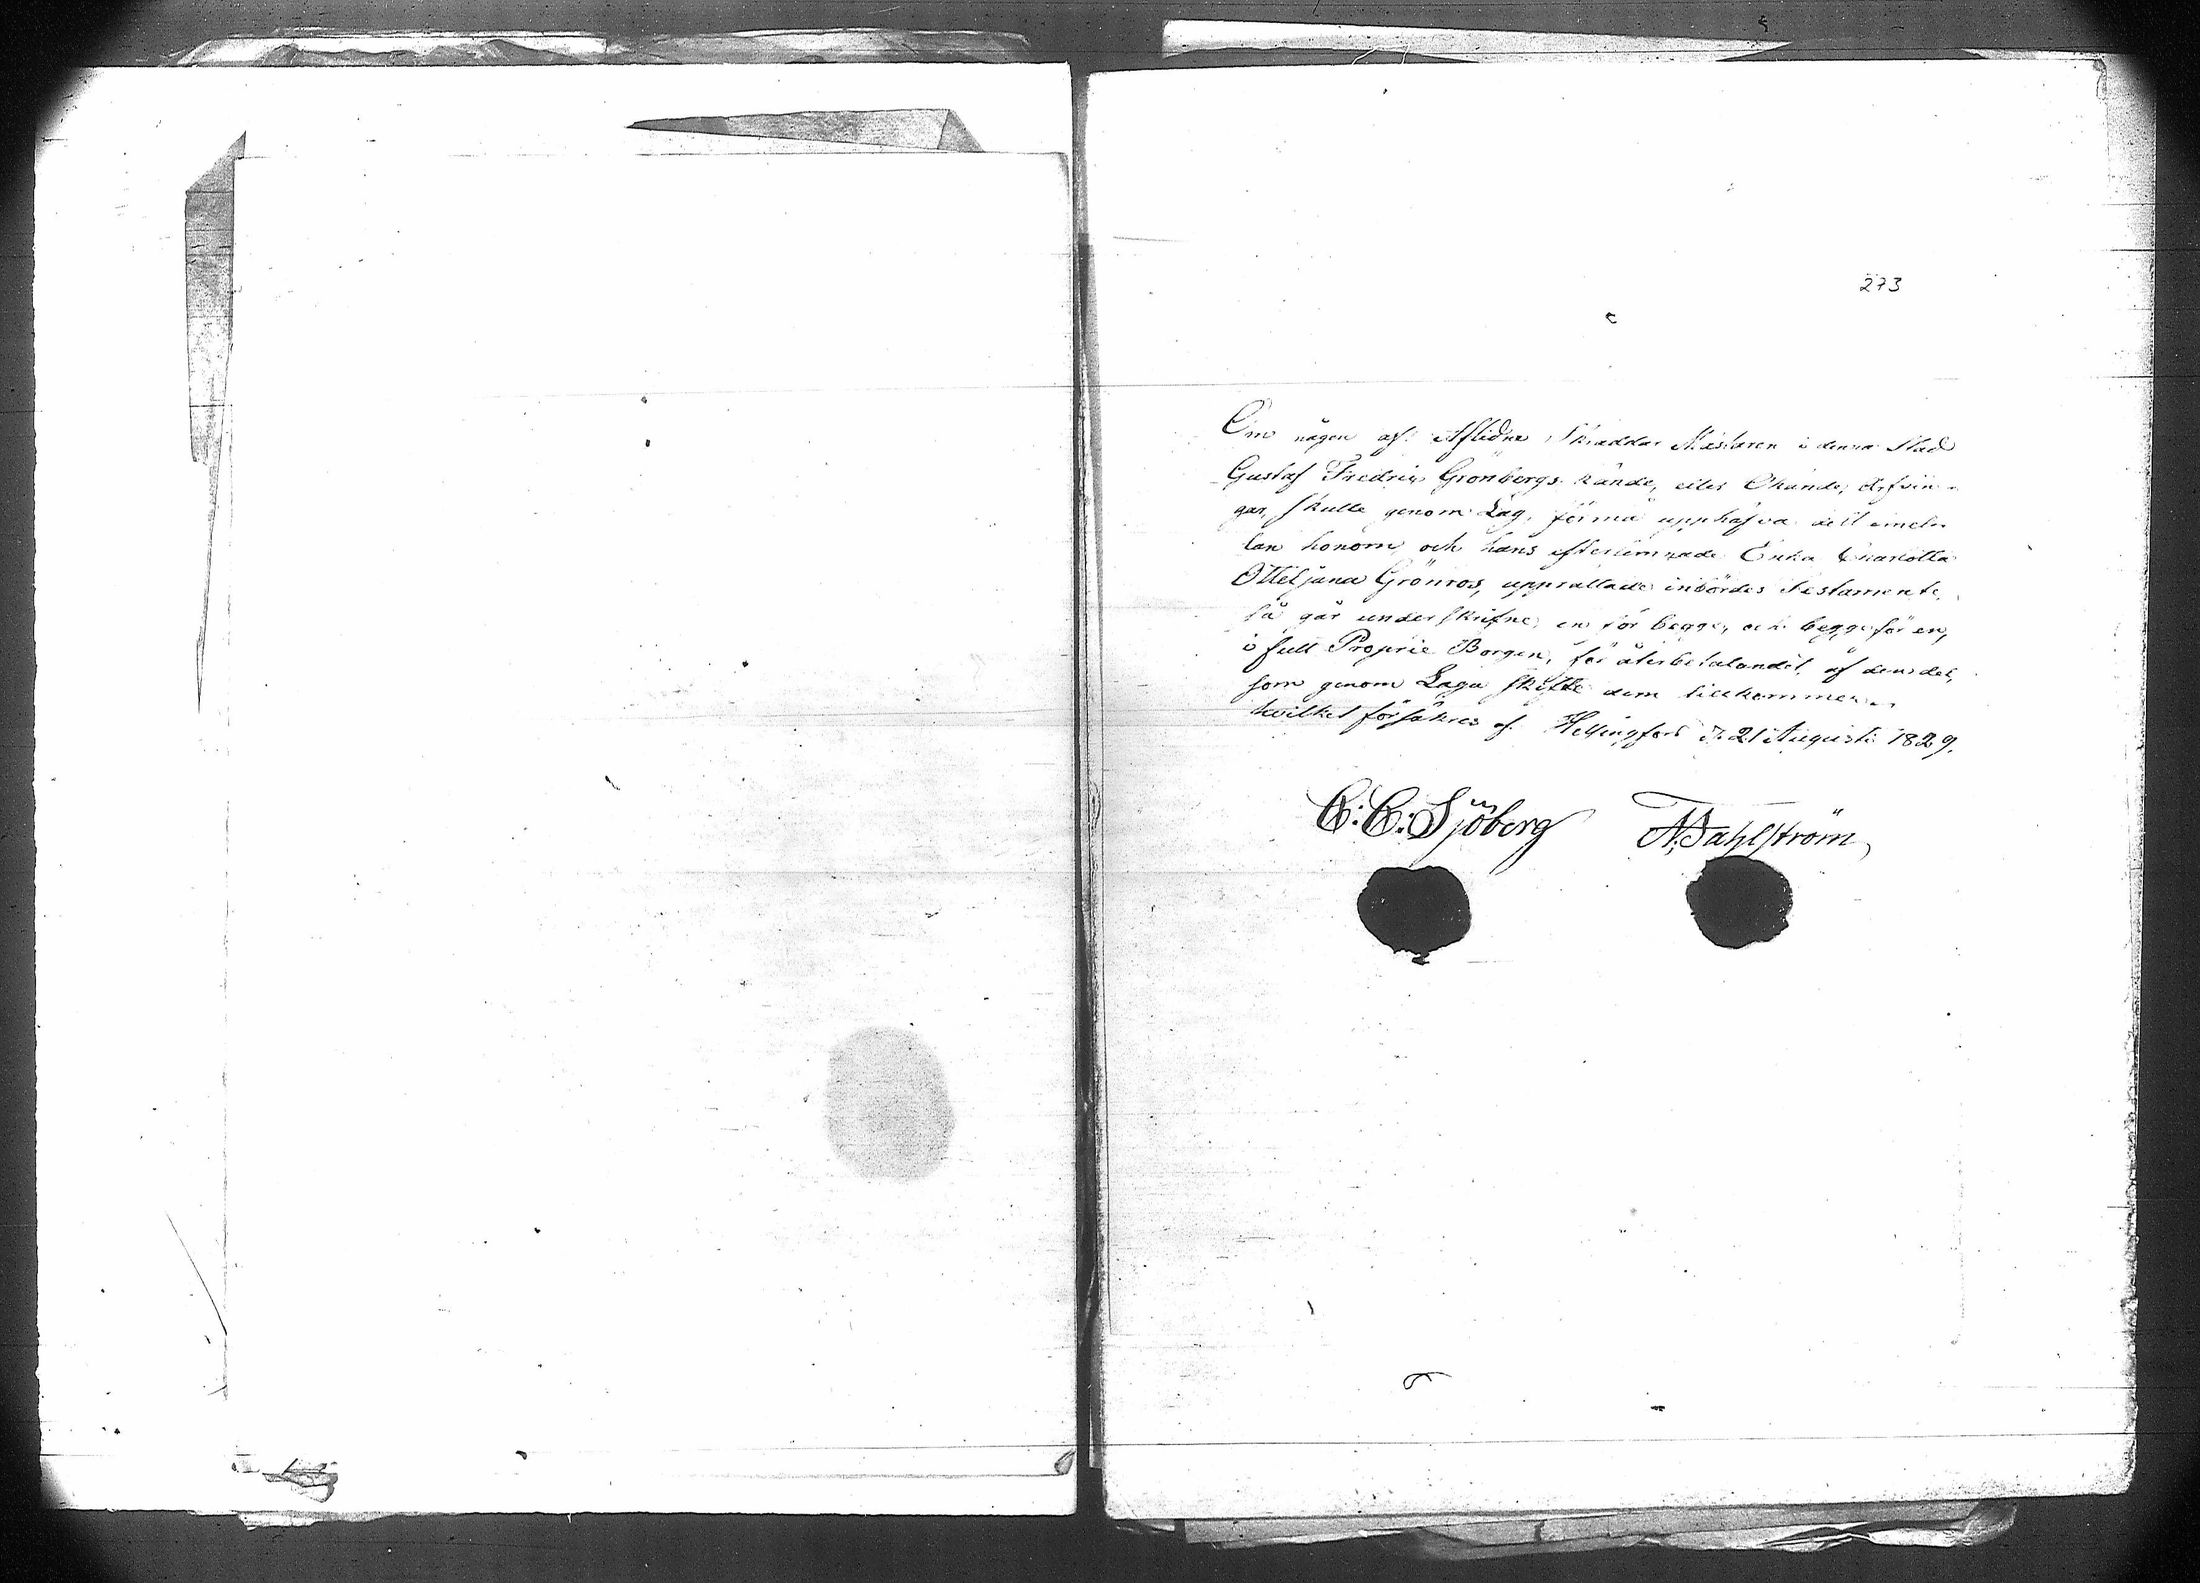 273
Om någon af Aflidne Skräddar Mästaren i denna Stad
Gustaf Fredric Grönbergs kände, eller Okände, Arfvin-
gar, skulle genom Lag, förmå upphäfva dett emel-
lan honom och hans efterlemnade Enka Charlotta
Ottiljana Grönros, upprättade inbördes Testamente,
så går underskrifne, en för begge, och begge för en,
i full Proprie Borgen, för återbetalandet af den del,
som genom Laga skifte dem tillkommer
hvilket försäkras af Helsingfors d. 21 Augusti 1829.
C: C: Sjöberg A. Dahlström,